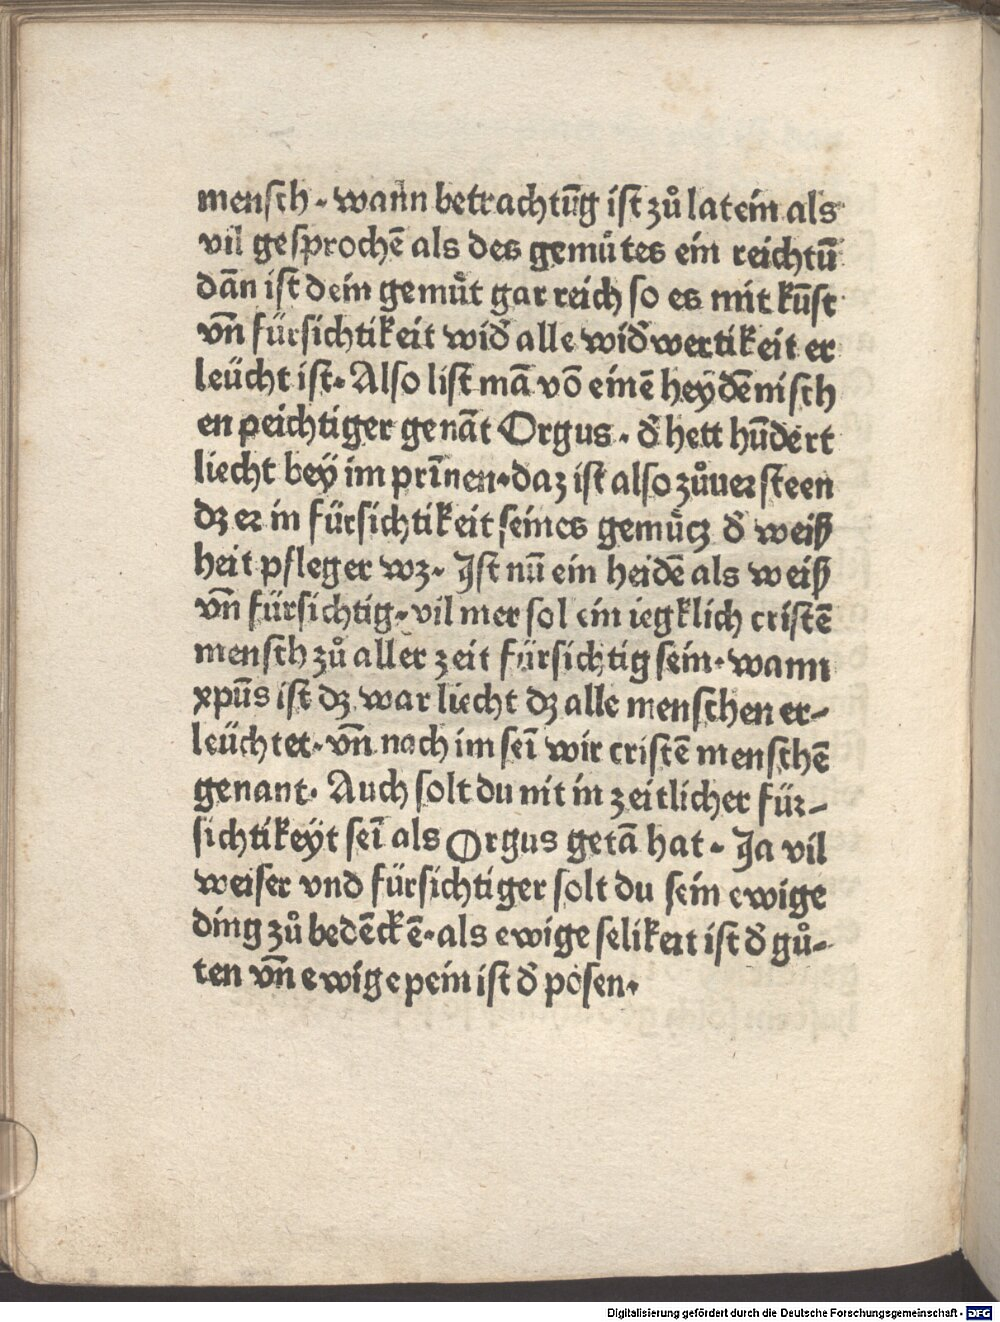 mensch. wann betrachtūg ist zů latein als
vil gesprochē als des gemůtes ein reichtū
dān ist dein gemůt gar reich so es mit kūst
vn̄ fürsichtikeit wid̄ alle wid̄wertikeit er
leücht ist. Also list mā vō einē heydēnisch
en peichtiger genāt Orgus. d̄ hett hūdert
liecht bey im prīnen. daz ist also zůuersteen
dz er in fürsichtikeit seines gemůcz d̄ weiß
heit pfleger wz. Ist nū ein heidē als weiß
vn̄ fürsichtig. vil mer sol ein iegklich cristē
mensch zů aller zeit fürsichtig sein. wann
xpūs ist dz war liecht dz alle menschen er-
leüchtet. vn̄ nach im seī wir cristē menschē
genant. Auch solt du nit in zeitlicher für-
sichtikeyt seī als Orgus getā hat. Ja vil
weiser vnd fürsichtiger solt du sein ewige
ding zů bedēckē. als ewige selikeit ist d̄ gů-
ten vn̄ ewige pein ist d̄ posen.
Digitalisierung gefördert durch die Deutsche Forschungsgemeinschaft - DFG